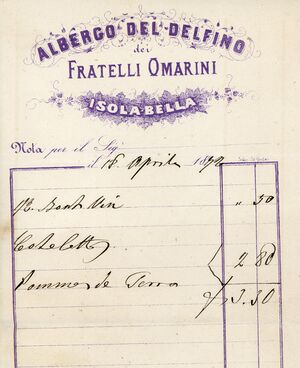 ALBERGO DEL DELFINO
dei
FRATELLI OMARINI
ISOLA BELLA
Nota per il Sig
il 16 April 1892
Vin " 50
Cotelett
Pommes de Terra 2 80
3.30